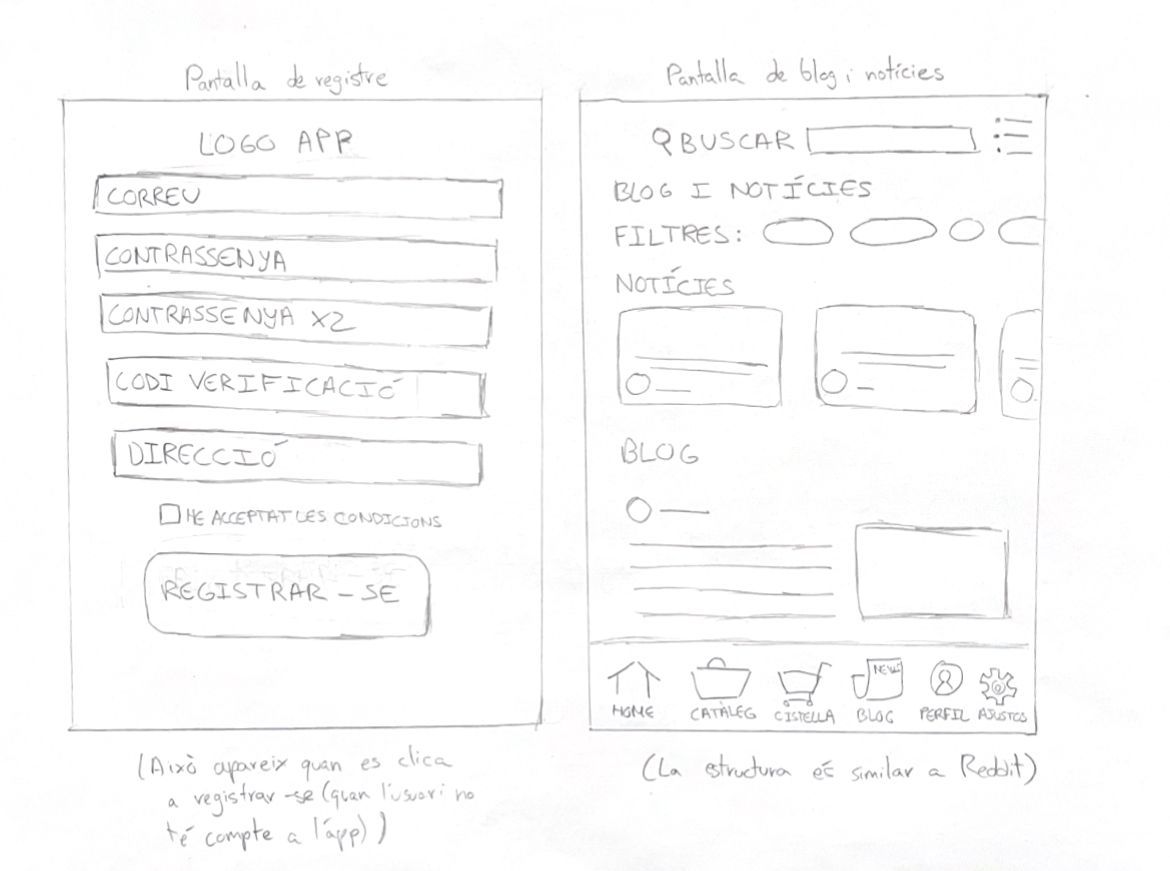 Pantalla de registre
LOGO APP
CORREU
CONTRASSENYA
CONTRASSENYA X2
CODI VERIFICACIÓ
DIRECCIÓ
HE ACCEPTAT LES CONDICIONS
REGISTRAR-SE
(Això apareix quan es clica
a registrar-se (quan l'usuari no
té compte a l'app))
Pantalla de blog i notícies
BUSCAR
BLOG I NOTÍCIES
FILTRES:
NOTÍCIES
BLOG
NEWS
HOME CATÀLEG CISTELLA BLOG PERFIL AJUSTOS
(La estructura és similar a Reddit)